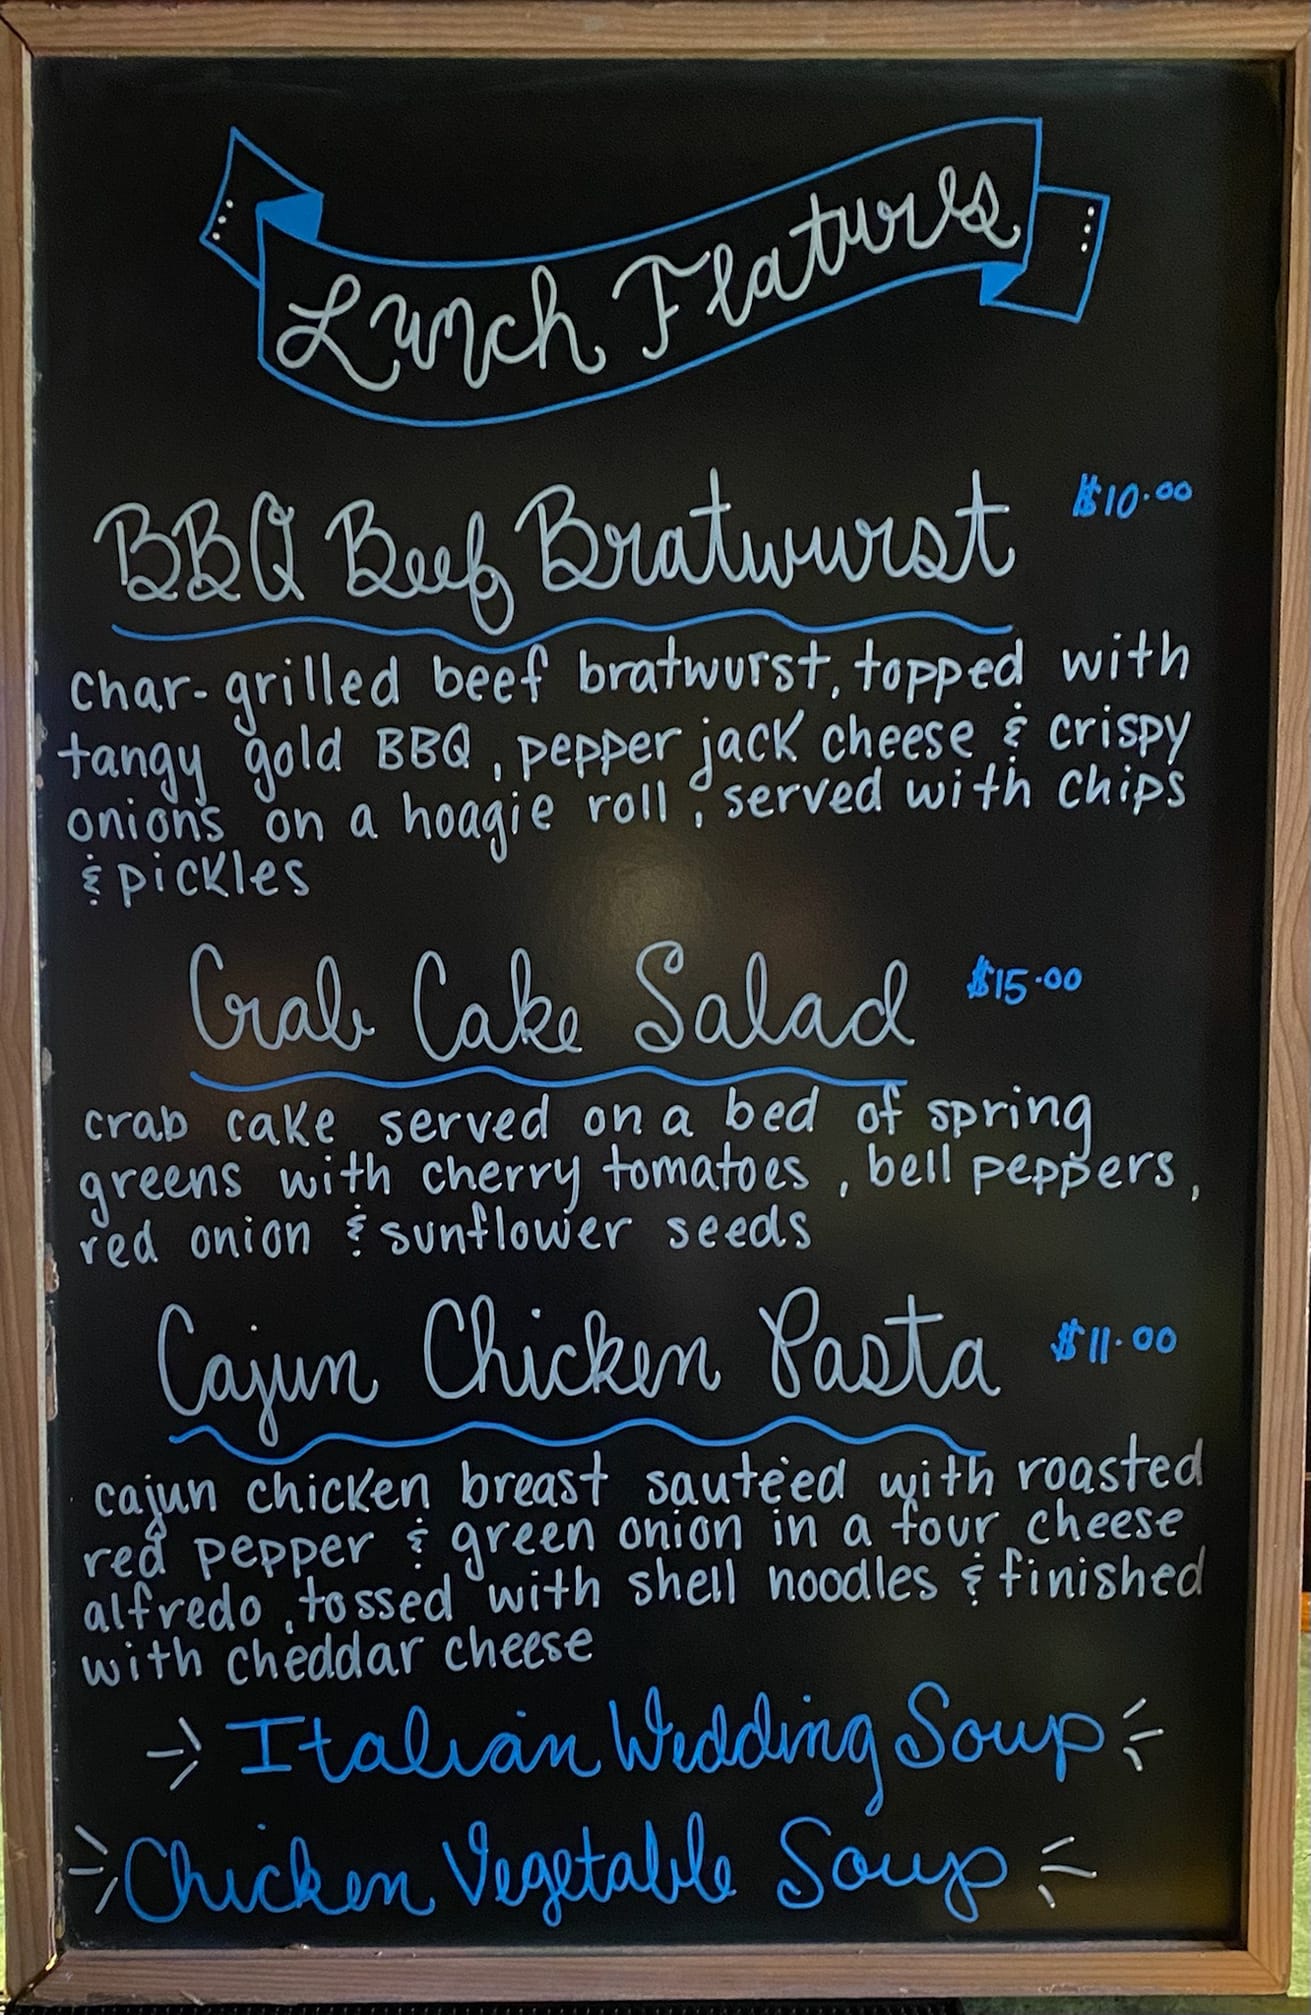 Lunch Features
BBQ Beef Bratwurst $10.00
char-grilled beef bratwurst, topped with
tangy gold BBQ, pepper jack cheese & crispy
onions on a hoagie roll, served with chips
& pickles
Crab Cake Salad $15.00
crab cake served on a bed of spring
greens with cherry tomatoes, bell peppers,
red onion & sunflower seeds
Cajun Chicken Pasta $11.00
cajun chicken breast sautéed with roasted
red pepper & green onion in a four cheese
alfredo, tossed with shell noodles & finished
with cheddar cheese
Italian Wedding Soup
Chicken Vegetable Soup